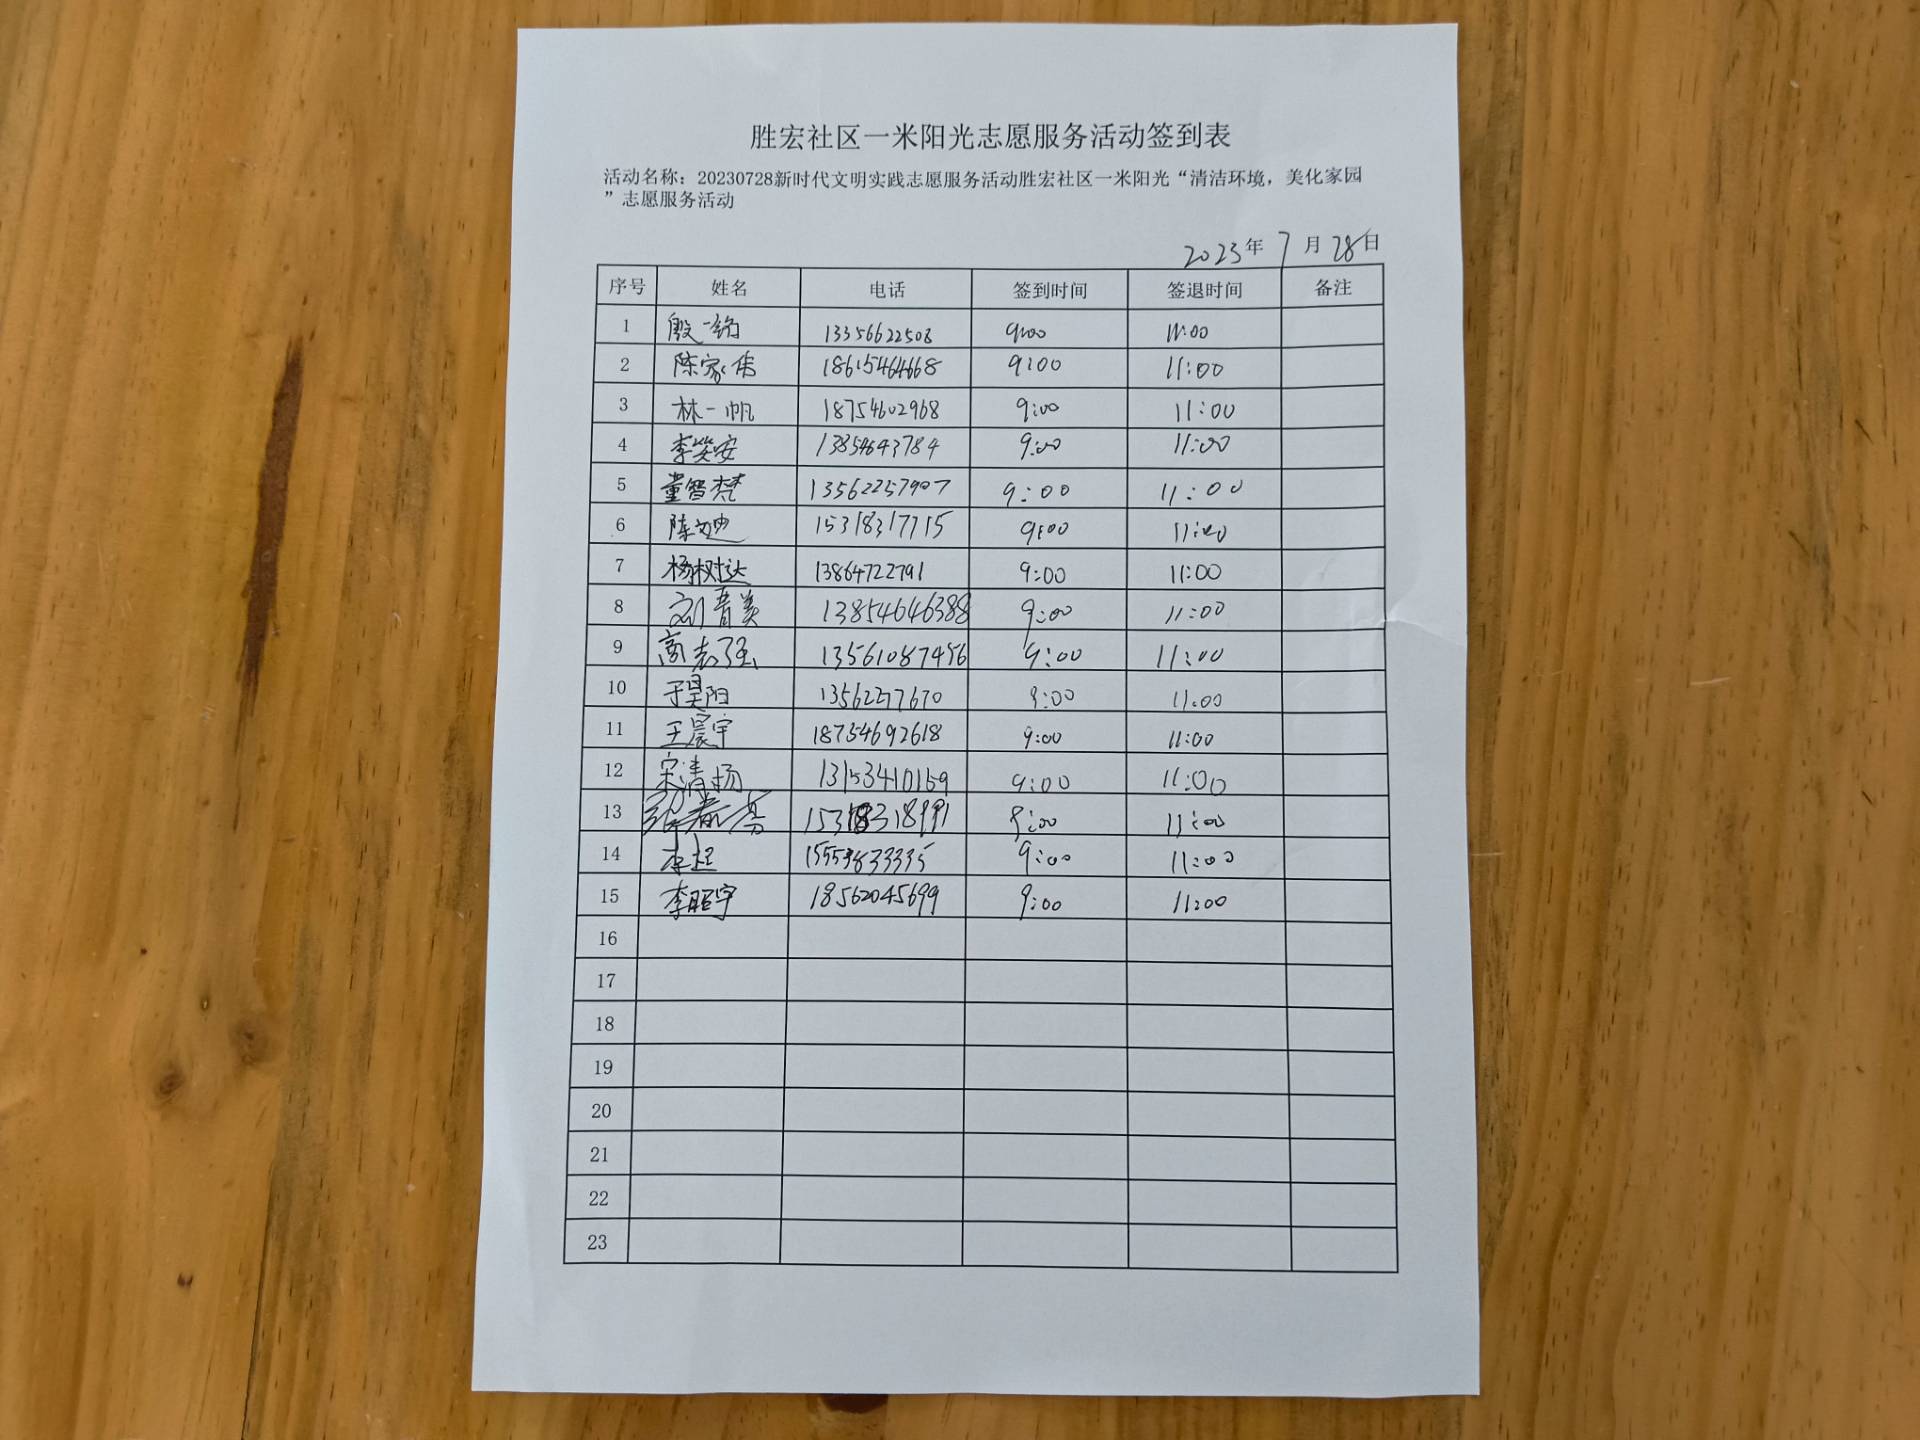 胜宏社区一米阳光志愿服务活动签到表
活动名称：20230728新时代文明实践志愿服务活动胜宏社区一米阳光“清洁环境，美化家园
”志愿服务活动
2023年 7 月 28日
序号 姓名 电话 签到时间 签退时间 备注
1 殷一铭 13356622508 9:00 11:00
2 陈家伟 18615464668 9:00 11:00
3 林一帆 18754602968 9:00 11:00
4 李笑安 13854643784 9:00 11:00
5 董智梵 13562257907 9:00 11:00
6 陈迪 15318317715 9:00 11:00
7 杨树达 13864722791 9:00 11:00
8 刘青美 13854646388 9:00 11:00
9 高志强 13561087456 9:00 11:00
10 于昊阳 13562277670 9:00 11:00
11 王宸宇 18754692618 9:00 11:00
12 宋清扬 13153410159 9:00 11:00
13 9:00 11:00
14 李起 9:00 11:00
15 李昭宇 18562045699 9:00 11:00
16
17
18
19
20
21
22
23